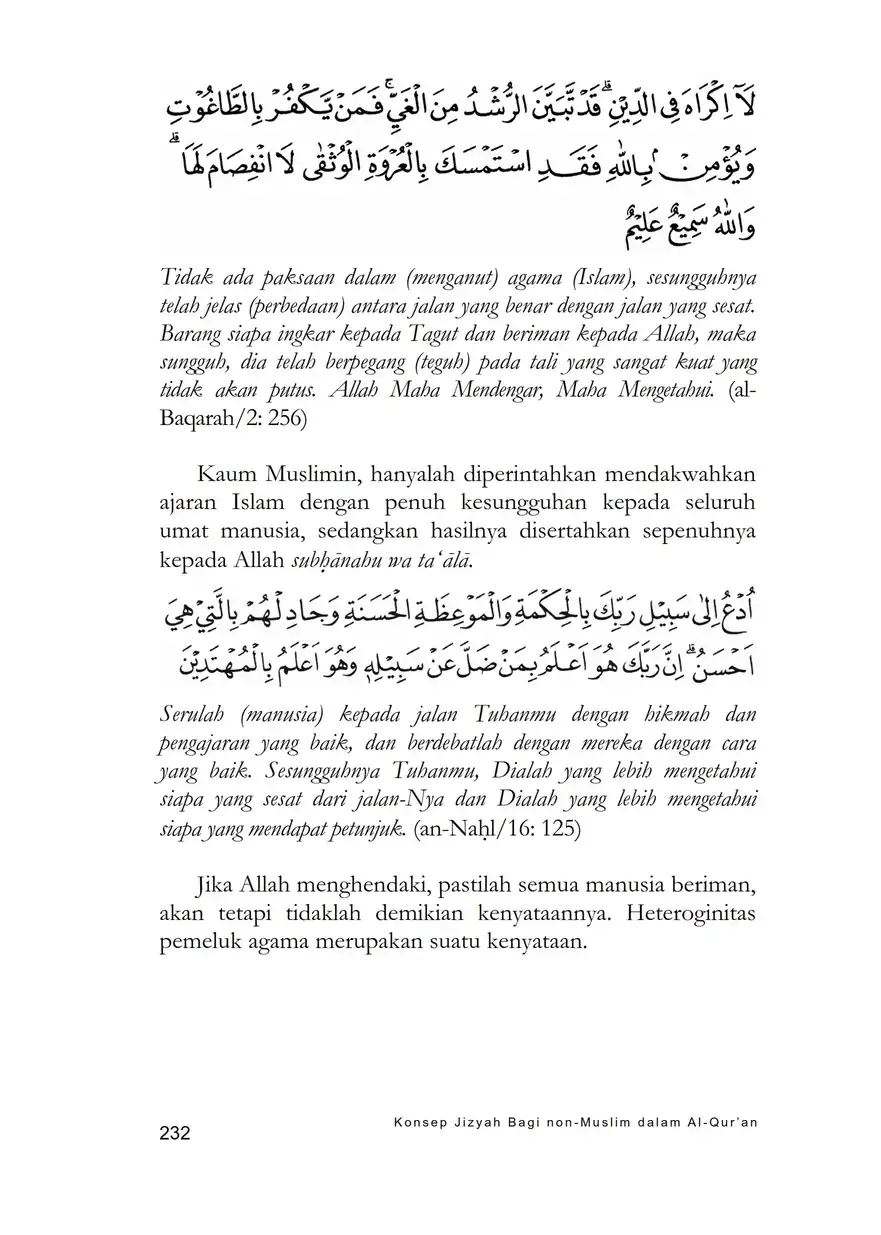 لَآ اِكْرَاهَ فِى الدِّيْنِۗ قَدْ تَّبَيَّنَ الرُّشْدُ مِنَ الْغَيِّۚ فَمَنْ يَّكْفُرْ بِالطَّاغُوْتِ
وَيُؤْمِنْۢ بِاللّٰهِ فَقَدِ اسْتَمْسَكَ بِالْعُرْوَةِ الْوُثْقٰى لَا انْفِصَامَ لَهَاۗ
وَاللّٰهُ سَمِيْعٌ عَلِيْمٌ
Tidak ada paksaan dalam (menganut) agama (Islam), sesungguhnya
telah jelas (perbedaan) antara jalan yang benar dengan jalan yang sesat.
Barang siapa ingkar kepada Tagut dan beriman kepada Allah, maka
sungguh, dia telah berpegang (teguh) pada tali yang sangat kuat yang
tidak akan putus. Allah Maha Mendengar, Maha Mengetahui. (al-
Baqarah/2: 256)
Kaum Muslimin, hanyalah diperintahkan mendakwahkan
ajaran Islam dengan penuh kesungguhan kepada seluruh
umat manusia, sedangkan hasilnya disertahkan sepenuhnya
kepada Allah subḥānahu wa ta‘ālā.
اُدْعُ اِلٰى سَبِيْلِ رَبِّكَ بِالْحِكْمَةِ وَالْمَوْعِظَةِ الْحَسَنَةِ وَجَادِلْهُمْ بِالَّتِيْ هِيَ
اَحْسَنُۗ اِنَّ رَبَّكَ هُوَ اَعْلَمُ بِمَنْ ضَلَّ عَنْ سَبِيْلِهٖ وَهُوَ اَعْلَمُ بِالْمُهْتَدِيْنَ
Serulah (manusia) kepada jalan Tuhanmu dengan hikmah dan
pengajaran yang baik, dan berdebatlah dengan mereka dengan cara
yang baik. Sesungguhnya Tuhanmu, Dialah yang lebih mengetahui
siapa yang sesat dari jalan-Nya dan Dialah yang lebih mengetahui
siapa yang mendapat petunjuk. (an-Naḥl/16: 125)
Jika Allah menghendaki, pastilah semua manusia beriman,
akan tetapi tidaklah demikian kenyataannya. Heteroginitas
pemeluk agama merupakan suatu kenyataan.
Konsep Jizyah Bagi non-Muslim dalam Al-Qur’an
232